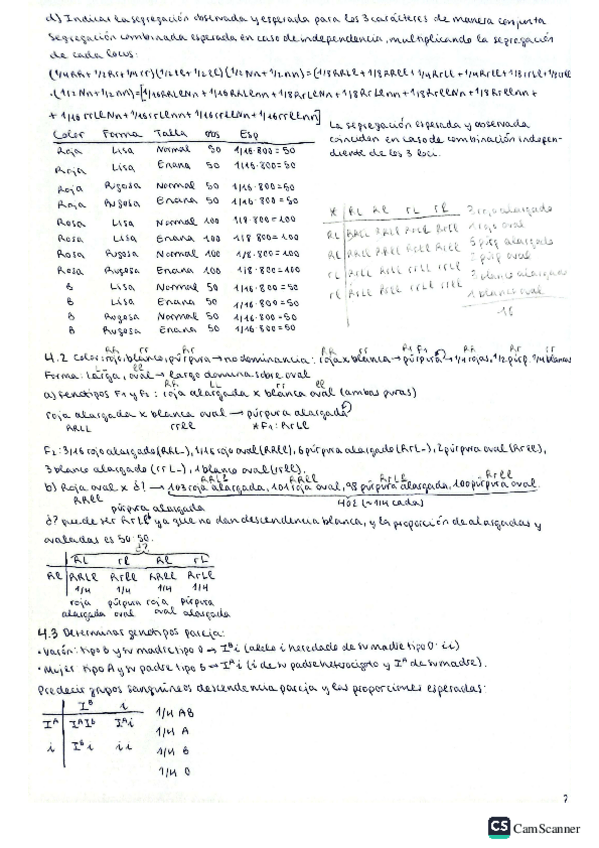 d) Indicar la segregación observada y esperada para los 3 carácteres de manera conjunta
Segregación combinada esperada en caso de independencia, multiplicando la segregación
de cada locus:
(1/4RR+1/2Rr+1/4rr)(1/2Ll+1/2ll)(1/2Nn+1/2nn)=(1/8RRLl+1/8RRll+1/4RrLl+1/4Rrll+1/8rrLl+1/8rrll)
·(1/2Nn+1/2nn)=[1/16RRLlNn+1/16RRLlnn+1/8RrLlNn+1/8RrLlnn+1/8RrllNn+1/8Rrllnn+
+1/16rrLlNn+1/16rrLlnn+1/16rrllNn+1/16rrllnn]
Color Forma Talla obs Esp
Roja Lisa Normal 50 1/16·800=50
Roja Lisa Enana 50 1/16·800=50
Roja Rugosa Normal 50 1/16·800=50
Roja Rugosa Enana 50 1/16·800=50
Rosa Lisa Normal 100 1/8·800=100
Rosa Lisa Enana 100 1/8·800=100
Rosa Rugosa Normal 100 1/8·800=100
Rosa Rugosa Enana 100 1/8·800=100
B Lisa Normal 50 1/16·800=50
B Lisa Enana 50 1/16·800=50
B Rugosa Normal 50 1/16·800=50
B Rugosa Enana 50 1/16·800=50
La segregación esperada y observada
coinciden en caso de combinación indepen-
diente de los 3 loci.
RL Rl rL rl
3 rojo alargado
1 rojo oval
6 púrp alargado
2 púrp oval
3 blanco alargado
1 blanco oval
16
4.2 Color: rojo, blanco, púrpura → no dominancia: roja x blanca → púrpura → 1/4 rojas, 1/2 púrp. 1/4 blancas
Forma: Larga, oval → largo domina sobre oval
a) Genotipos F1 y F2: roja alargada x blanca oval (ambas puras)
roja alargada x blanca oval → púrpura alargada
RRLL rrll *F1: RrLl
F2: 3/16 rojo alargado (RRL-), 1/16 rojo oval (RRll), 6 púrpura alargado (RrL-), 2 púrpura oval (Rrll),
3 blanco alargado (rrL-), 1 blanco oval (rrll).
RRLl RRll RrLl Rrll
b) Roja oval x ¿? → 103 roja alargada, 101 roja oval, 98 púrpura alargada, 100 púrpura oval.
RRll púrpura alargada 402 (~1/4 cada)
¿? puede ser RrLl ya que no dan descendencia blanca, y la proporción de alargadas y
ovaladas es 50:50.
¿?
RL rl Rl rL
Rl RRLl Rrll RRll RrLl
1/4 1/4 1/4 1/4
roja púrpura roja púrpura
alargada oval oval alargada
4.3 Determinar genotipos pareja:
• Varón: tipo B y su madre tipo O → Iᴮi (alelo i heredado de su madre tipo O: ii)
• Mujer: tipo A y su padre tipo B → Iᴬi (i de su padre heterocigoto y Iᴬ de su madre).
Predecir grupos sanguíneos descendencia pareja y las proporciones esperadas:
Iᴮ i
Iᴬ IᴬIᵇ Iᴬi
i Iᴮi ii
1/4 AB
1/4 A
1/4 B
1/4 O
2
CS CamScanner